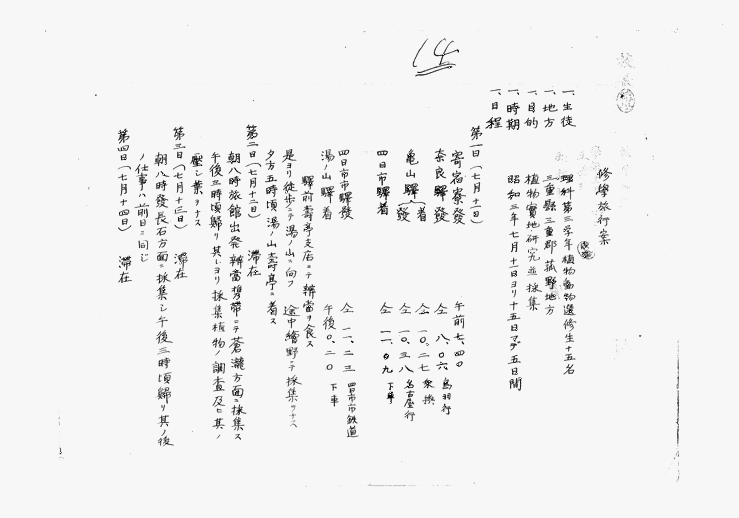 14
修學旅行案
一、生徒　理科第三学年植物動物選修生十五名
一、地方　三重縣三重郡菰野地方
一、目的　植物實地研究並採集
一、時期　昭和三年七月十一日ヨリ十五日マデ五日間
一、日程
第一日(七月十一日)
寄宿寮發　午前七、四〇
奈良驛發　仝 八、〇六 鳥羽行
亀山驛 着 仝 一〇、二七 乗換
發 仝 一〇、三八 名古屋行
四日市驛着　仝 一一、〇九 下車
四日市市驛發　仝 一一、二三 四日市市鉄道
湯ノ山驛着　午後〇、二〇 下車
驛前壽亭支店ニテ辨當ヲ食ス
是ヨリ徒歩ニテ湯ノ山ニ向フ 途中繪野ニテ採集ヲナス
夕方五時頃湯ノ山壽亭ニ着ス
第二日(七月十二日)　滞在
朝八時旅館出発辨當携帯ニテ蒼瀧方面ニ採集ス
午後三時頃歸リ其レヨリ採集植物ノ調査及ヒ其ノ
壓シ葉ヲナス
第三日(七月十三日)　滞在
朝八時發長石方面ニ採集シ午後三時頃歸リ其ノ後
ノ仕事ハ前日ニ同じ
第四日(七月十四日)　滞在